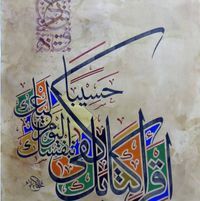 اقرأ كتابك كفى
بنفسك اليوم عليك
حسيبا